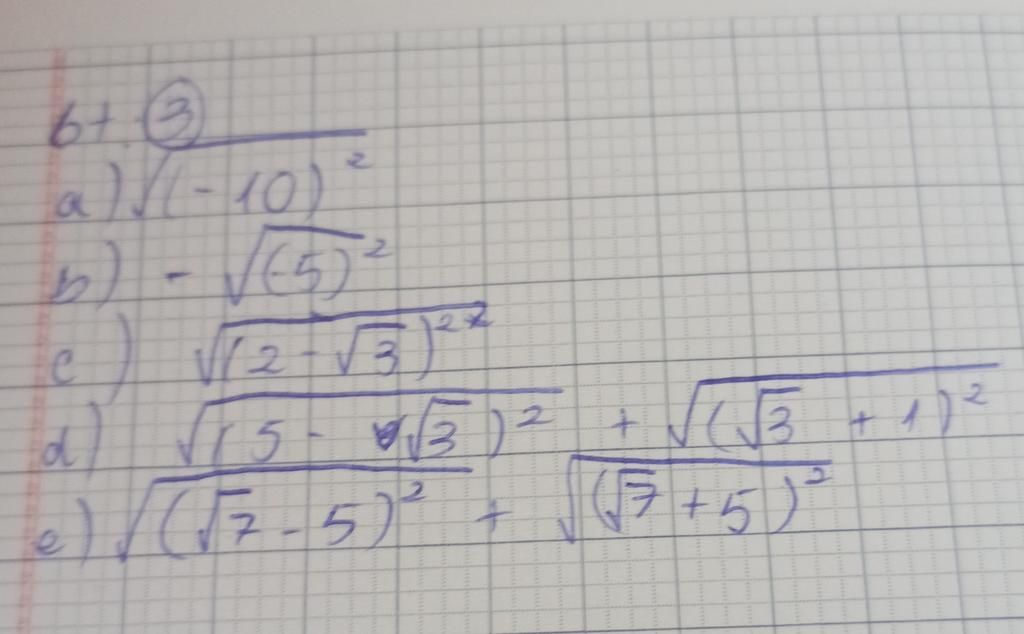 bt ③
a) √(-10)²
b) - √(-5)²
c) √(2-√3)²
d) √(5-√3)² + √(√3+1)²
e) √(√7-5)² + √(√7+5)²